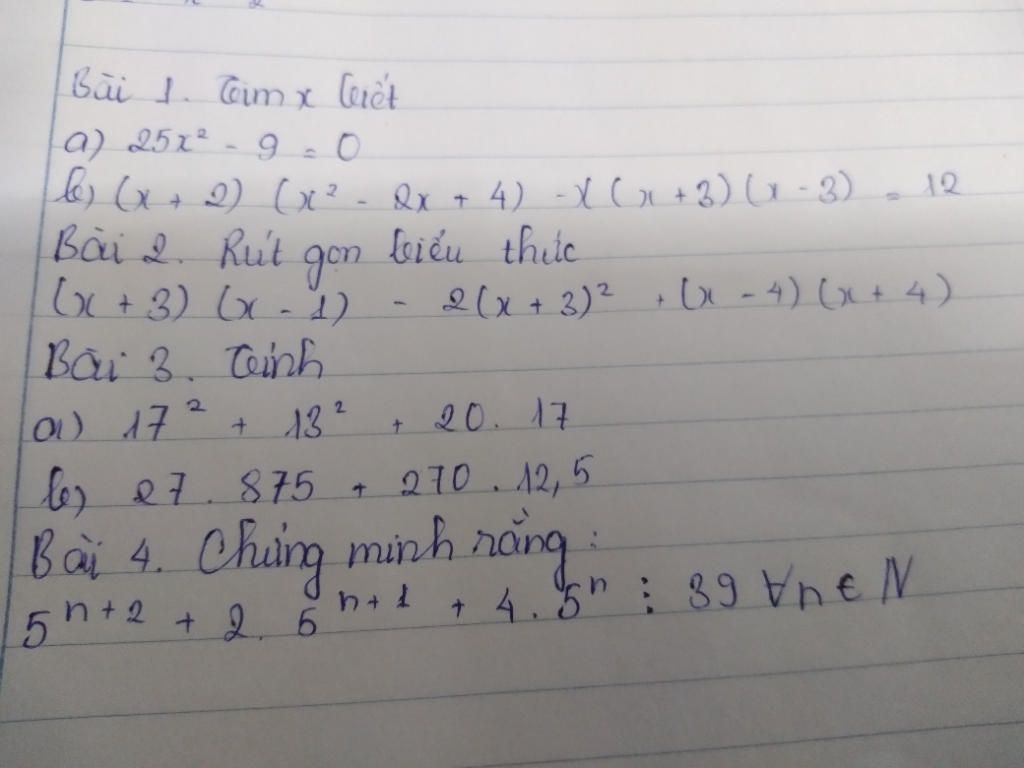 Bài 1. Tìm x biết
a) 25x² - 9 = 0
b) (x + 2) (x² - 2x + 4) - x(x + 3)(x - 3) = 12
Bài 2. Rút gọn biểu thức
(x + 3) (x - 1) - 2(x + 3)² + (x - 4)(x + 4)
Bài 3. Tính
a) 17² + 13² + 20. 17
b) 27. 875 + 270. 12,5
Bài 4. Chứng minh rằng:
5ⁿ⁺² + 2. 5ⁿ⁺¹ + 4. 5ⁿ ⋮ 39 ∀n ∈ N